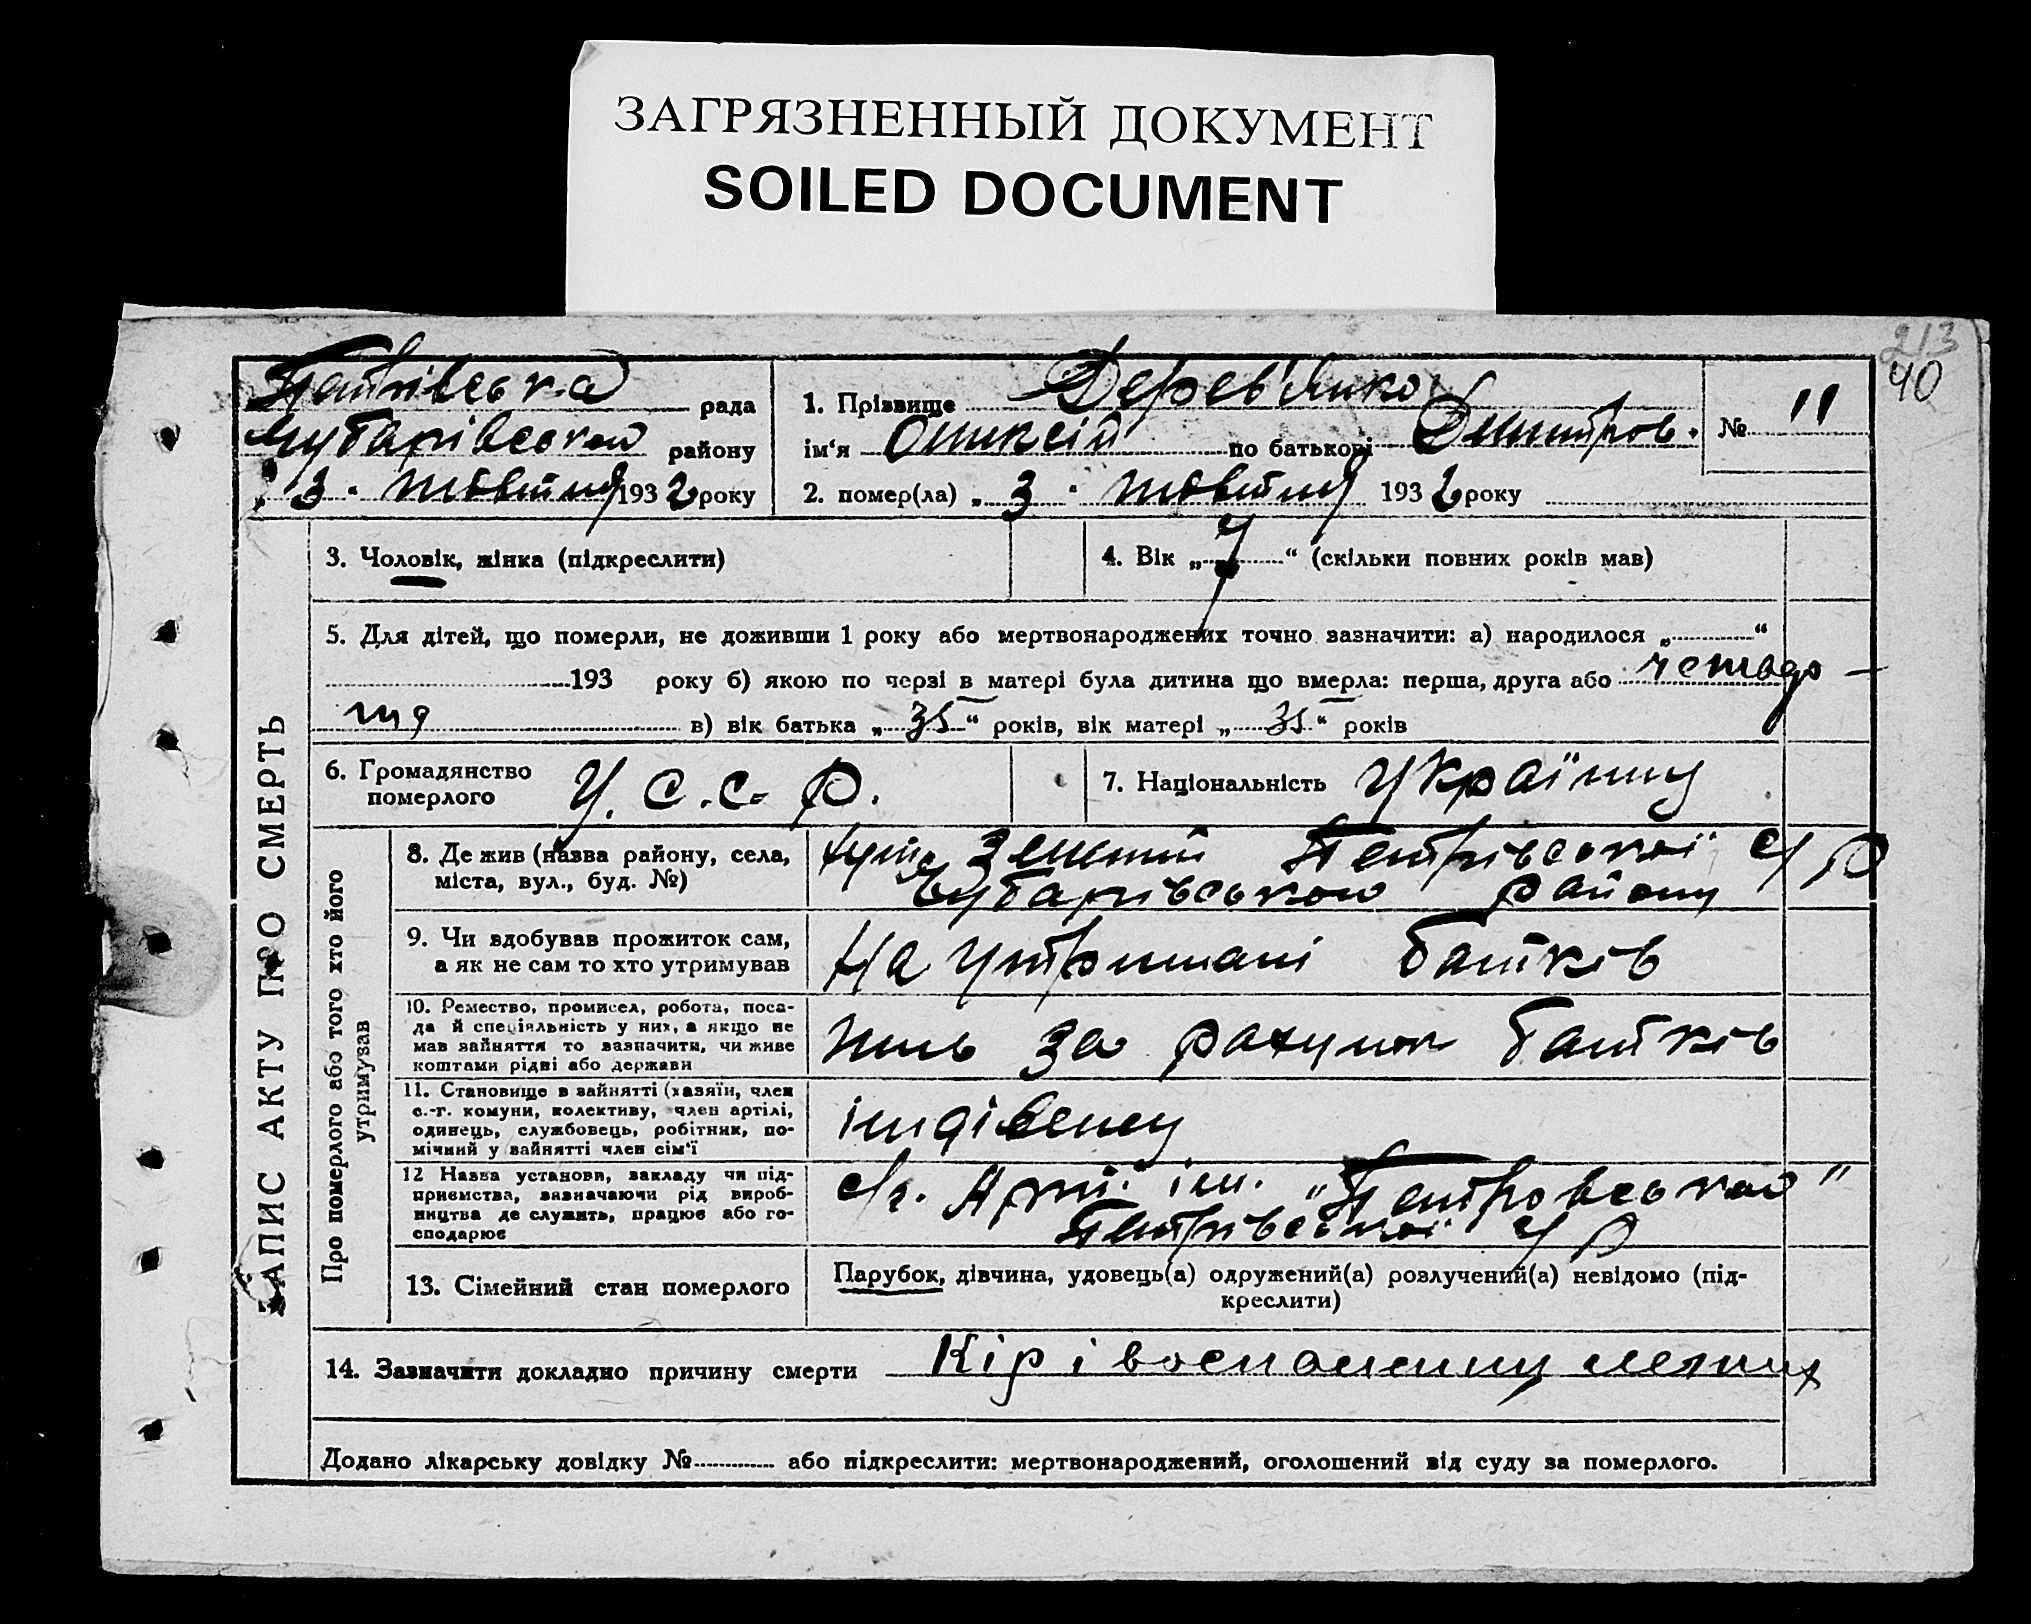 ЗАГРЯЗНЕННЫЙ ДОКУМЕНТ
SOILED DOCUMENT
213
40
Петрівська рада
Чубарівського району
„ 3 " жовтня 1932 року
1. Прізвище Дерев'янко
ім'я Олексій по батькові Дмитров.
№ 11
2. помер(ла) „ 3 " жовтня 1932 року
ЗАПИС АКТУ ПРО СМЕРТЬ
3. Чоловік, жінка (підкреслити)
4. Вік „ “ (скільки повних років мав)
5. Для дітей, що померли, не доживши 1 року або мертвонароджених точно зазначити: а) народилося „ “
193 року б) якою по черзі в матері була дитина що вмерла: перша, друга або
в) вік батька „ 35 “ років, вік матері „ 35 “ років
6. Громадянство
померлого У. С. С. Р.
7. Національність Українец
Про померлого або того хто його
утримував
8. Де жив (назва району, села,
міста, вул., буд. №)
Зелений Петрівської с/р
Чубарівського району
9. Чи вдобував прожиток сам,
а як не сам то хто утримував
На утримані батьків
10. Ремество, промисел, робота, поса-
да й спеціяльність у них, а якщо не
мав зайняття то зазначити, чи живе
коштами рідні або держави
жив за рахунок батьків
11. Становище в зайнятті (хазяїн, член
с.-г. комуни, колективу, член артілі,
одинець, службовець, робітник, по-
мічний у зайнятті член сім'ї
12 Назва установи, закладу чи під-
приємства, зазначаючи рід вироб-
ництва де служить, працює або го-
сподарює
с/г. Арт. ім. „Петровського"
Петрівської с/р
13. Сімейний стан померлого
Парубок, дівчина, удовець(а) одружений(а) розлучений(а) невідомо (під-
креслити)
14. Зазначити докладно причину смерти Кір і легких
Додано лікарську довідку № або підкреслити: мертвонароджений, оголошений від суду за померлого.